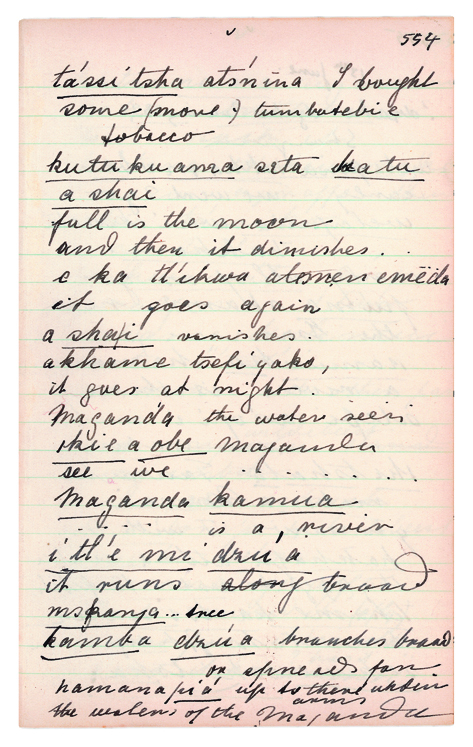 554
tássi tsha atsnina I bought
some (more ?) tumbatebie
tobacco
kutukuanza seta hatu
a shai
full is the moon
and then it dimishes . .
e ka tl'ekwa atomen emēda
it goes again
a shaji vanishes.
akhame tsefi yako,
it goes at night.
Maganda the water seen
okie a obe maganda
see we . . . . . . .
Maganda kamua
. . . . . is a, river
i tl'e mi dzu'a
it runs along broad
mspanja .. tree
kamba dzúa branches broad
or spreads far
hamana up to there
arms
the waters of the Maganda